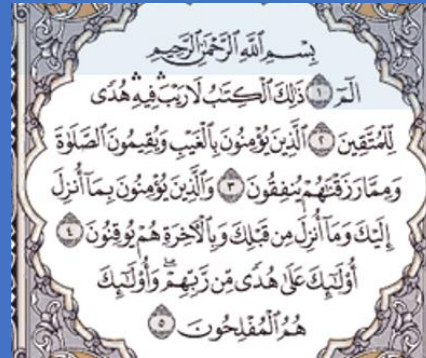 بِسْمِ ٱللَّهِ ٱلرَّحْمَٰنِ ٱلرَّحِيمِ
الٓمٓ ۝١ ذَٰلِكَ ٱلْكِتَٰبُ لَا رَيْبَ ۛ فِيهِ ۛ هُدًى
لِّلْمُتَّقِينَ ۝٢ ٱلَّذِينَ يُؤْمِنُونَ بِٱلْغَيْبِ وَيُقِيمُونَ ٱلصَّلَوٰةَ
وَمِمَّا رَزَقْنَٰهُمْ يُنفِقُونَ ۝٣ وَٱلَّذِينَ يُؤْمِنُونَ بِمَآ أُنزِلَ
إِلَيْكَ وَمَآ أُنزِلَ مِن قَبْلِكَ وَبِٱلْءَاخِرَةِ هُمْ يُوقِنُونَ ۝٤
أُو۟لَٰٓئِكَ عَلَىٰ هُدًى مِّن رَّبِّهِمْ ۖ وَأُو۟لَٰٓئِكَ
هُمُ ٱلْمُفْلِحُونَ ۝٥